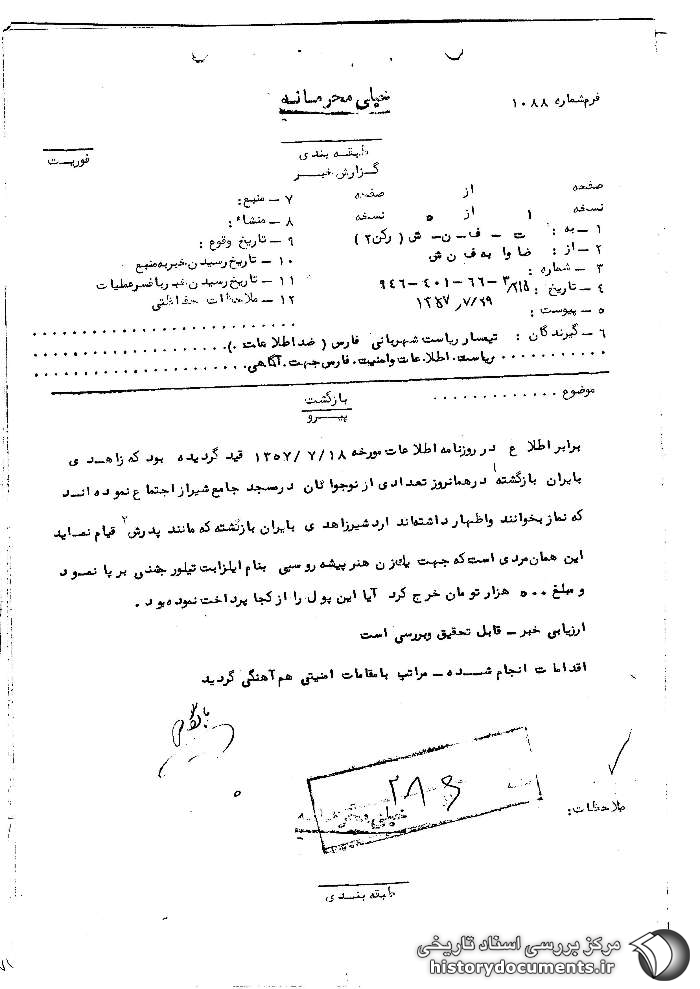 خیلی محرمانه
فرم شماره ۱۰۸۸
طبقه بندی
گزارش خبر
فوریت
صفحه از صفحه
نسخه ۱ از ۵ نسخه
۱ - به : ت - ف - ن - ش ( رکن ۲ )
۲ - از : ضاوا به ف ن ش
۳ - شماره : ۹۴۶-۴۰۱-۶۶-۳
۴ - تاریخ : ۱۳۵۷/۷/۲۹
۵ - پیوست :
۷ - منبع :
۸ - منشاء :
۹ - تاریخ وقوع :
۱۰ - تاریخ رسیدن خبر به منبع
۱۱ - تاریخ رسیدن خبر با فسر عملیات
۱۲ - ملاحظات حفاظتی
۶ - گیرندگان : تیمسار ریاست شهربانی فارس ( ضد اطلاعات ).
ریاست اطلاعات وامنیت فارس جهت آگاهی.
موضوع
بازگشت
پیرو
برابر اطلاع در روزنامه اطلاعات مورخه ۱۳۵۷/۷/۱۸ قید گردیده بود که زاهدی
بایران بازگشته در همانروز تعدادی از نوجوانان در مسجد جامع شیراز اجتماع نموده اند
که نماز بخوانند واظهار داشته‌اند اردشیر زاهدی بایران بازگشته که مانند پدرش قیام نماید
این همان مردی است که جهت یک زن هنر پیشه روسبی بنام ایلزابت تیلور جشنی بر پا نمود
و مبلغ ۵۰۰ هزار تومان خرج کرد آیا این پول را از کجا پرداخت نموده بود .
ارزیابی خبر - قابل تحقیق وبررسی است
اقدامات انجام شده - مراتب با مقامات امنیتی هم آهنگی گردید
ملاحظات:
خیلی محرمانه
طبقه بندی
مرکز بررسی اسناد تاریخی
historydocuments.ir